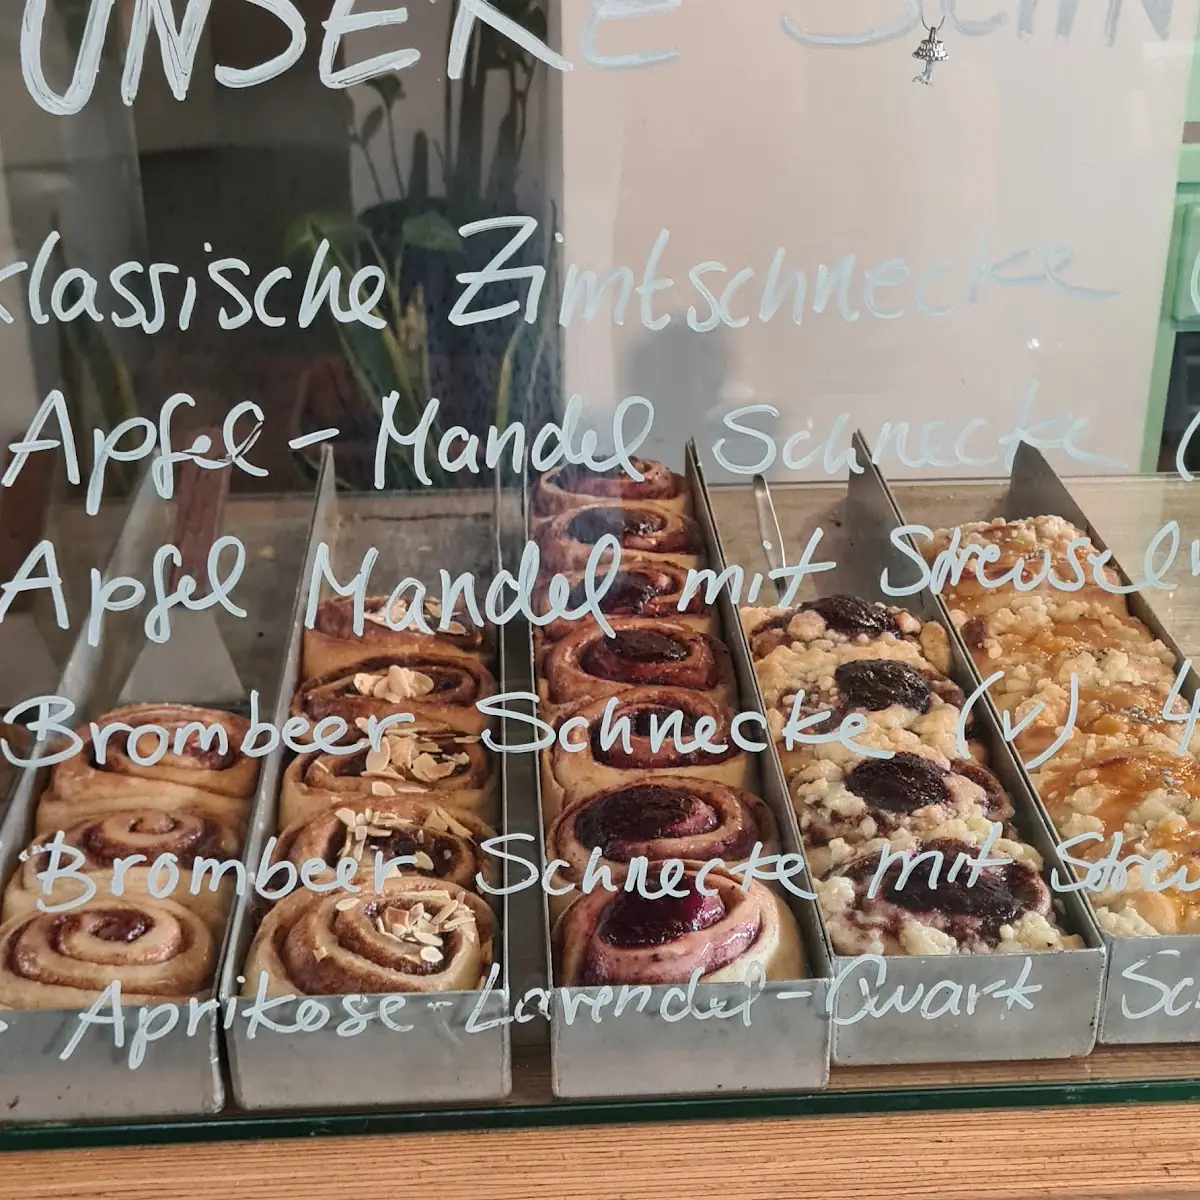 UNSERE SCHN
klassische Zimtschnecke (
Apfel-Mandel Schnecke (
Apfel Mandel mit Streusel
Brombeer Schnecke (v) 4
Brombeer Schnecke mit Streu
Aprikose-Lavendel-Quark Sc